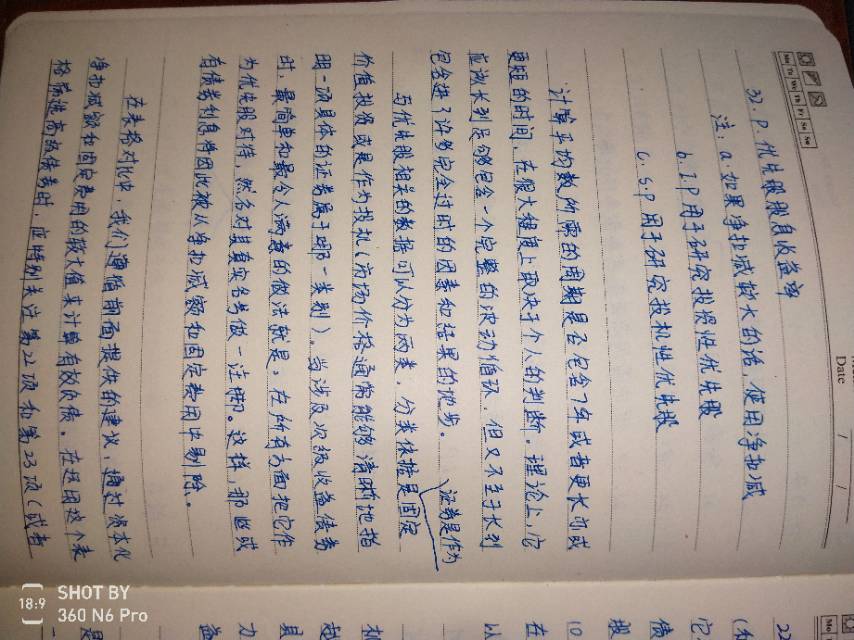 Date / /
Mo Tu We Th Fr Sa Su
32. P. 优先股股息收益率
注: a. 如果净扣减较大的话, 使用净扣减
b. I.P 用于研究投资性优先股
c. S.P 用于研究投机性优先股
计算平均数所需的周期是否包含7年或者更长而或
更短的时间, 在很大程度上取决于个人的判断。理论上, 它
应该长到足够包含一个完整的波动循环, 但又不至于长到
包含进了许多完全过时的因素和结果的地步。
与优先股相关的数据可以分为两类, 分类依据是固定 证券是作为
价值投资或是作为投机(市场价格通常能够清晰地指
明一项具体的证券属于哪一类别)。当涉及次级收益债券
时, 最简单和最令人满意的做法就是: 在所有方面把它作
为优先股对待, 然后对其真实名号做一注明。这样, 那些或
有债券利息将因此被从净扣减额和固定费用中剔除。
在表格对比中, 我们遵循前面提供的建议, 通过资本化
净扣减额和固定费用的较大值来计算有效负债。在运用这个表
格筛选高级债券时, 应特别关注第22项和第23项(或者
SHOT BY
360 N6 Pro
18:9